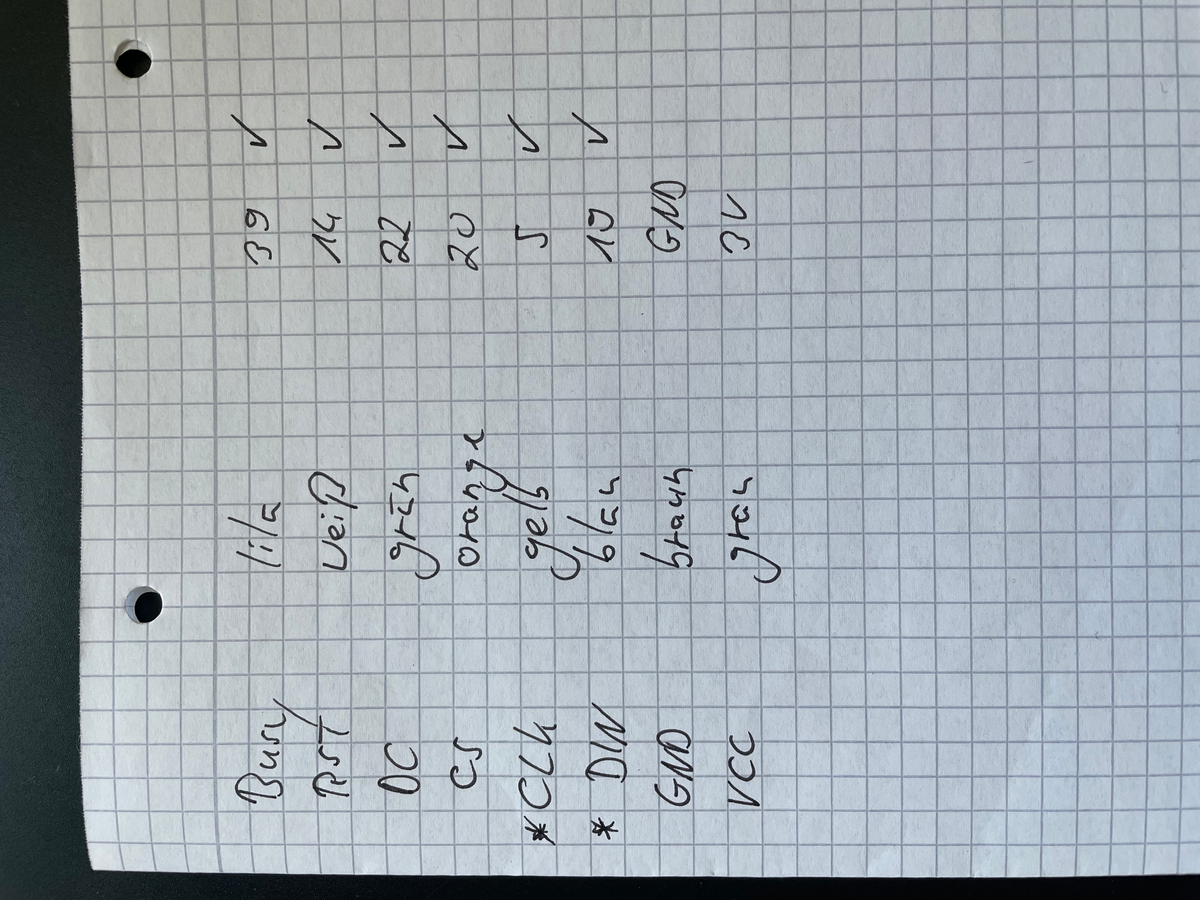 Busy lila 39 ✓
RST weiß 14 ✓
DC grün 22 ✓
CS orange 20 ✓
*CLK gelb 5 ✓
* DIN blau 19 ✓
GND braun GND
VCC grau 3V